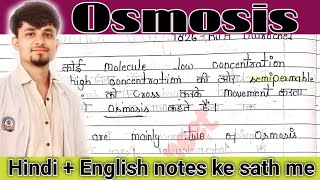 Osmosis
कोई Molecule low concentration
high concentration की ओर semipermable
को Cross करके movement करता
Osmosis कहते हैं।
are mainly type of Osmosis
Hindi + English notes ke sath me